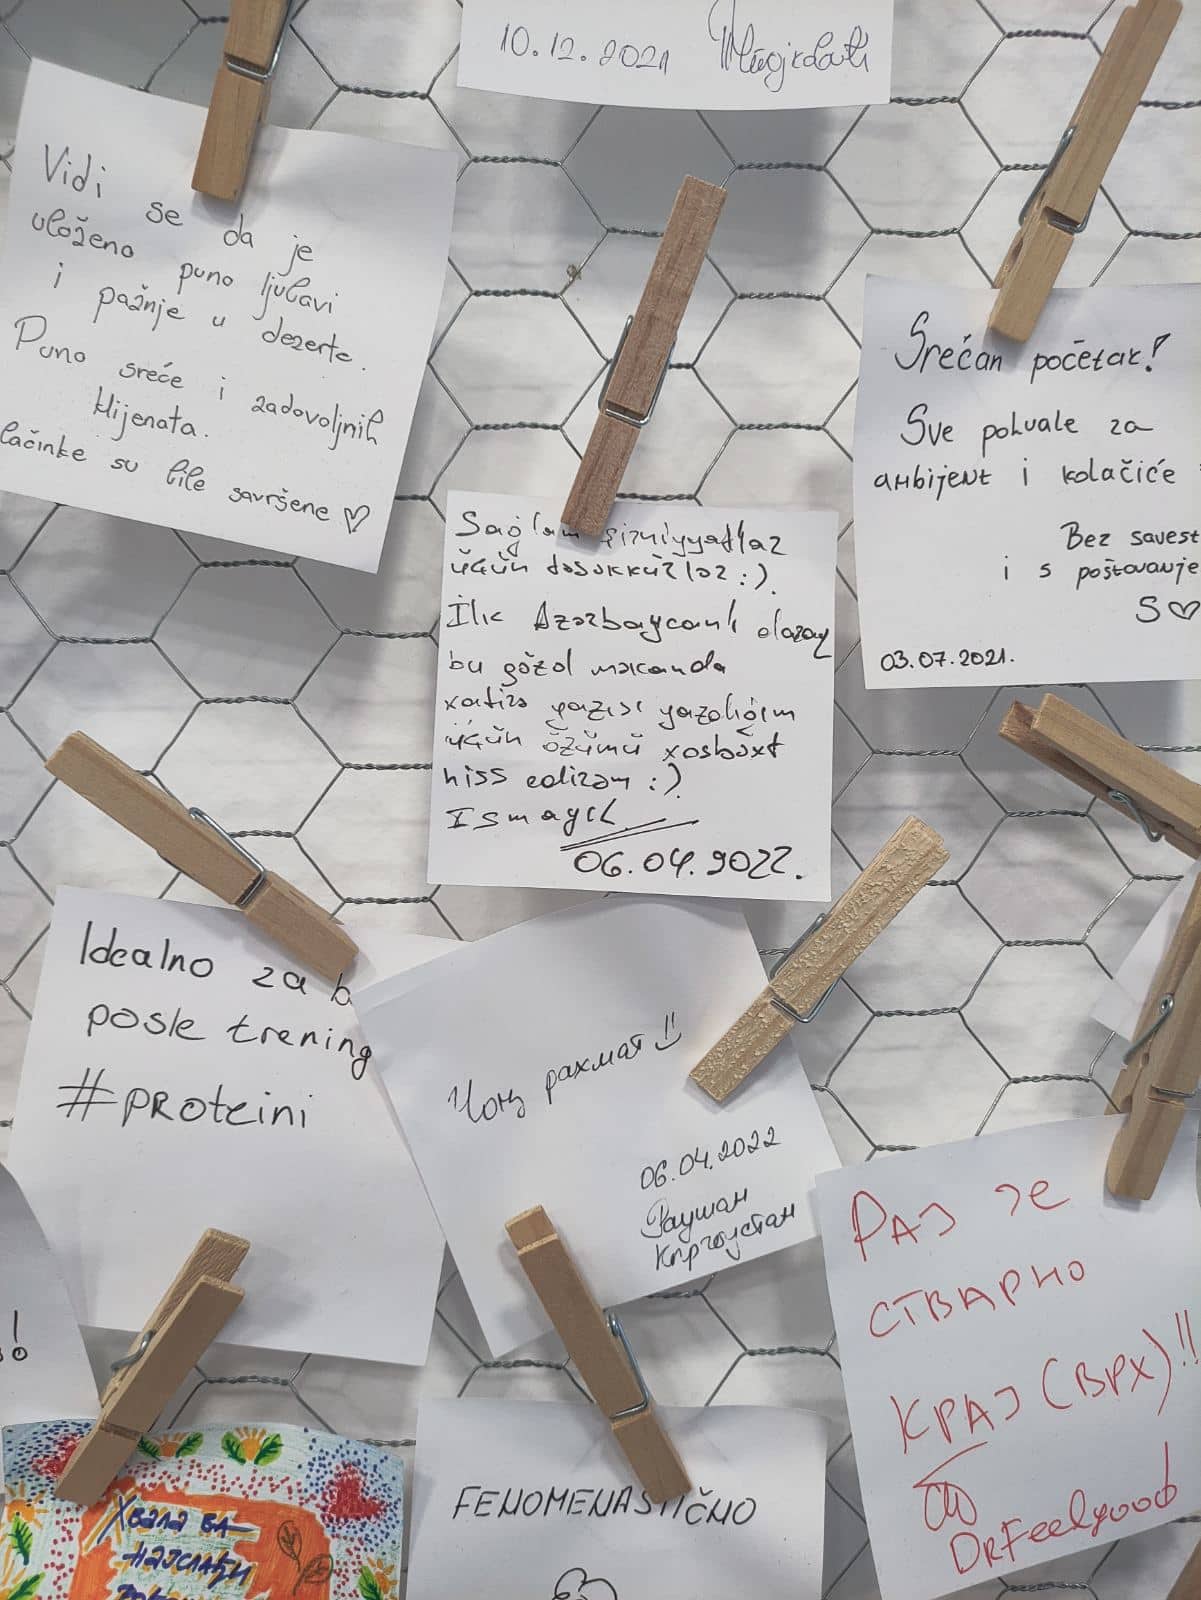 10.12.2021
Vidi
se da je
uloženo puno ljubavi
i pažnje u dezerte.
Puno sreće i zadovoljnih
klijenata.
lačinke su bile savršene ♡
Srećan početak!
Sve pohvale za
ambijent i kolačiće
Bez savest
i s poštovanje
S♡
03.07.2021.
Sağlam şirniyyatlar
üçün təşəkkürlər :).
İlk Azərbaycanlı olaraq
bu gözəl məkanda
xatirə yazısı yazdığım
üçün özümü xoşbəxt
hiss edirəm :).
Ismayıl
06.04.2022.
Idealno za b
posle trening
#proteini
Чоң рахмат!!
06.04.2022
Раушан
Кыргызстан
РАЈ ЈЕ
СТВАРНО
КРАЈ (ВРХ)!!
DrFeelgood
!
FENOMENASTIČNO
Хвала за
најслађи